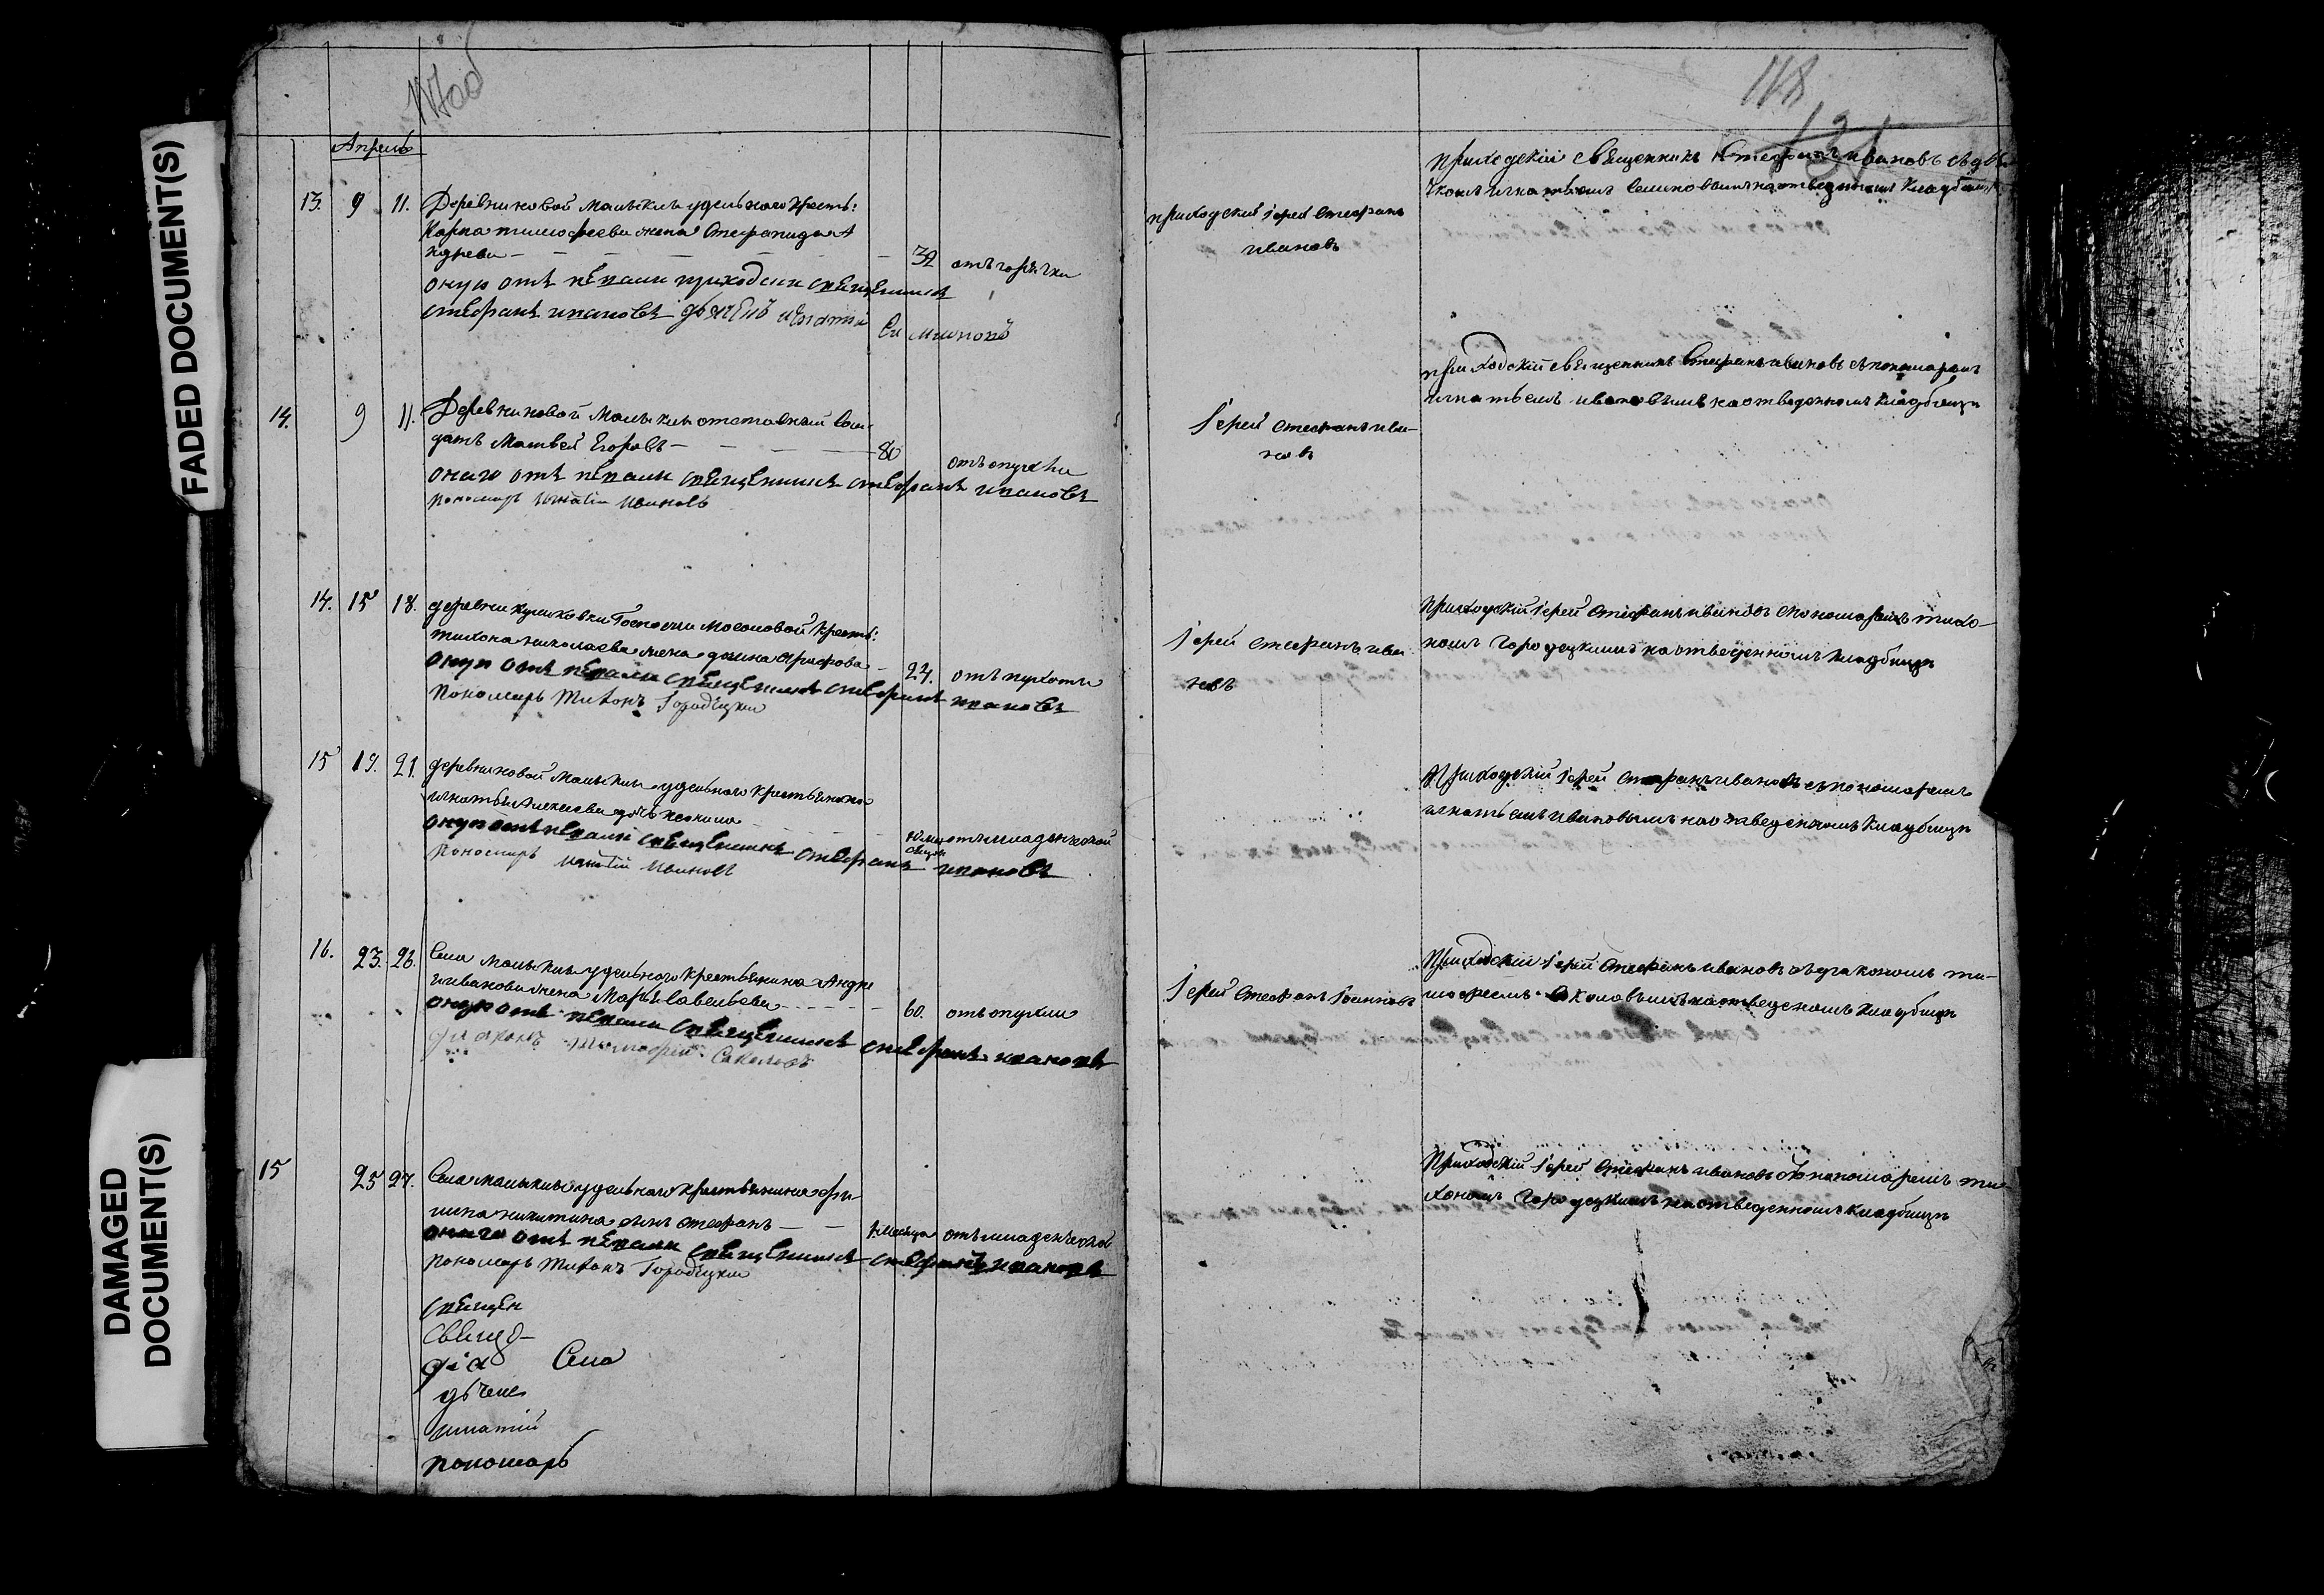 FADED DOCUMENT(S)
DAMAGED
DOCUMENT(S)
118
Апрель
13. 9 11. Деревни новой Малыклы удельнаго крестъ:
Карпа тимофеева жена Стефанида А
ндреева 32 отъ горячки
оную отпевали приходски священникъ
стефанъ ивановъ дьячекъ игнатій Симионовъ
приходский Іерей Стефанъ
ивановъ
приходскій священникъ Стефанъ ивановъ съ дья
чкомъ игнатьемъ Симионовымъ на отведенномъ кладбищѣ
14. 9 11. Деревни новой Малыклы отставный сол
датъ Матвей Егоровъ 80 отъ опухли
онаго отпевали священникъ стефанъ ивановъ
пономарь игнатій Ивановъ
Іерей Стефанъ ива-
новъ
приходскій священникъ Стефанъ ивановъ съ пономаремъ
игнатьемъ ивановымъ на отведенномъ кладбищѣ
14. 15 18. деревни Госпожи Мосоловой крестъ:
тихона николаева жена 24. отъ
оную отпевали священникъ стефанъ ивановъ
пономарь Тихонъ Городецкии
Іерей стефанъ ива
новъ
приходскій Іерей стефанъ ивановъ с пономаремъ тихо-
номъ Городецкимъ на отведенномъ кладбищѣ
15 19. 21. деревни новой Малыклы удельнаго крестьянина
игнатья Алексеева дочь отъ младенческой
оную отпевали священникъ стефанъ ивановъ
пономарь игнатій Ивановъ
Приходскій Іерей Стефанъ ивановъ съ пономаремъ
игнатьемъ ивановымъ на отведенномъ кладбищѣ
16. 23. 26. Села малыклы удельнаго крестьянина Андре
я иванова жена Марья Савельева 60. отъ опухли
оную отпевали священникъ стефанъ ивановъ
діаконъ тимофей Соколовъ
Іерей Стефанъ Іоанновъ
Приходскій Іерей Стефанъ ивановъ съ диакономъ ти-
мофеемъ Соколовымъ на отведеномъ кладбищѣ
15 25 27. Села малыклы удельнаго крестьянина фи-
липа никитина сынъ стефанъ отъ младенческой
онаго отпевали священникъ стефанъ ивановъ
пономарь Тихонъ Городецкии
Приходскій Іерей Стефанъ ивановъ с пономаремъ ти
хономъ Городецкимъ на отведенномъ кладбищѣ
священ
діа Села
дьчек
игнатій
пономарь